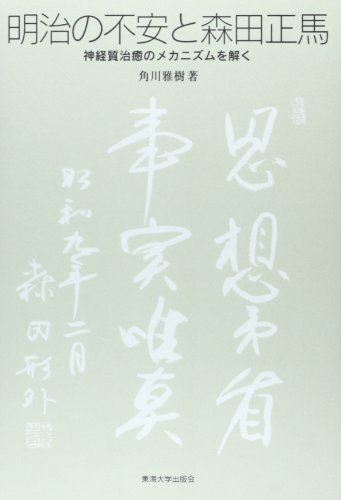 明治の不安と森田正馬
神経質治癒のメカニズムを解く
角川雅樹 著
思想矛盾
事実唯真
昭和九年二月
森田形外
東海大学出版会